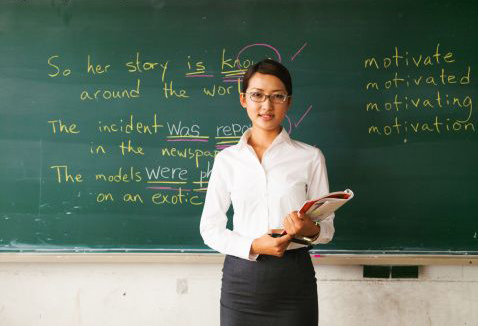 So her story is
around the
The incident was
in the newspaper
The models were
on an exotic
motivate
motivated
motivating
motivation